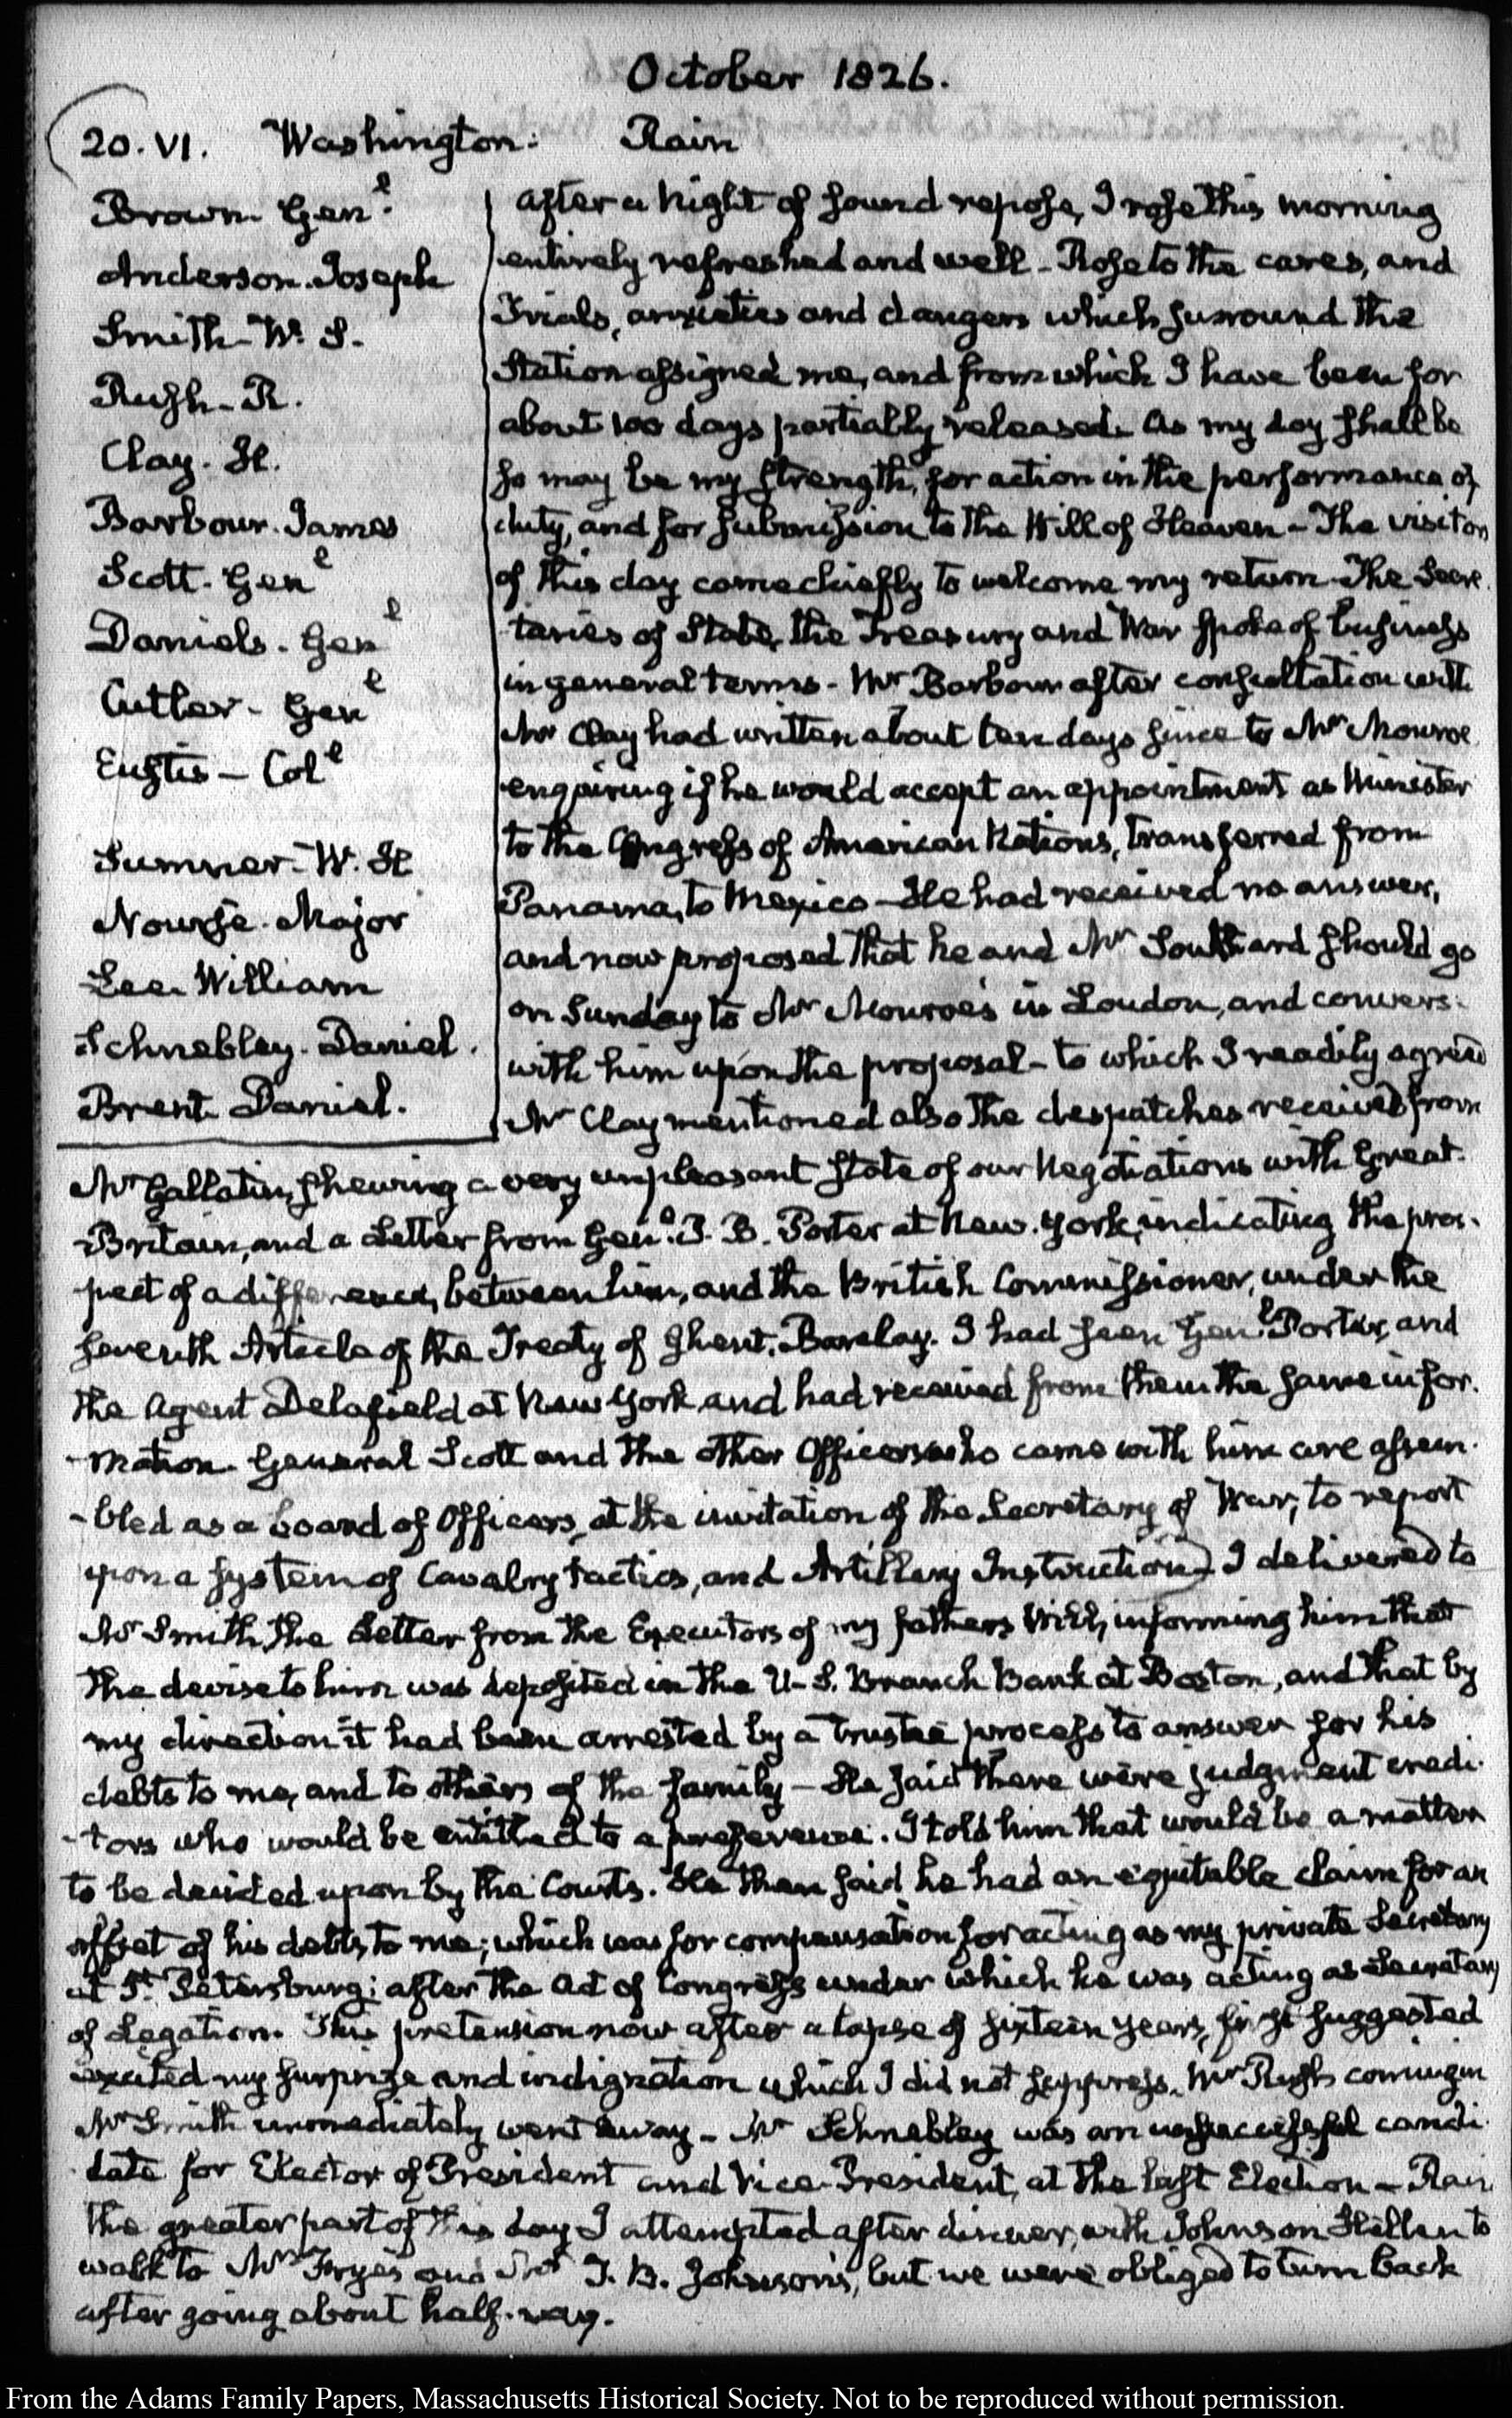 October 1826.
20. VI. Washington: Rain
Brown Gen.l
Anderson. Joseph
Smith- W. S.
Rush- R.
Clay. H.
Barbour. James
Scott. Genl
Daniels. Genl
Cutler- Genl
Eustis- Coll
Sumner- W. H
Nourse. Major
Lee. William
Schnebley. Daniel.
Brent Daniel.
After a Night of sound repose, I rose this morning
entirely refreshed and well- Rose to the cares, and
Trials, anxieties and dangers which surround the
Station assigned me, and from which I have been for
about 100 days partially released. As my day shall be
so may be my strength, for action in the performance of
duty, and for submission to the Will of Heaven- The visitors
of this day came chiefly to welcome my return. The Secre
taries of State, the Treasury and War spoke of business
in general terms- Mr Barbour after consultation with
Mr Clay had written about ten days since to Mr Monroe
enquiring if he would accept an appointment as Minister
to the Congress of American Nations, transferred from
Panama, to Mexico- He had received no answer,
and now proposed that he and Mr Southard should go
on Sunday to Mr Monroe's in Loudon, and convers.
with him upon the proposal- to which I readily agreed
Mr Clay mentioned also the despatches received from
Mr Gallatin, shewing a very unpleasant State of our Negotiations with Great.
Britain, and a Letter from Genl. P. B. Porter at New-York, indicating the pros-
pect of a difference, between him, and the British Commissioner, under the
seventh Article of the Treaty of Ghent, Barclay. I had seen Genl Porter, and
the Agent Delafield at New York and had received from them the same infor-
-mation. General Scott and the other Officers who came with him are assem-
-bled as a board of Officers, at the invitation of the Secretary of War, to report
upon a system of Cavalry tactics, and Artillery Instruction- I delivered to
Mr Smith, the Letter from the Executors of my father's Will, informing him that
the devise to him was deposited in the U-S. Branch Bank at Boston, and that by
my direction it had been arrested by a trustee process to answer for his
debts to me, and to others of the family- He said there were judgment credi-
-tors who would be entitled to a preference. I told him that would be a matter
to be decided upon by the Courts. He then said he had an equitable claim for an
offset of his debts to me; which was for compensation for acting as my private Secretary
at St. Petersburg; after the Act of Congress under which he was acting as Secretary
of Legation. This pretension now after a lapse of sixteen years, first suggested
excited my surprize and indignation which I did not suppress. Mr Rush coming in
Mr Smith immediately went away- Mr Schnebley was an unsuccessful candi
date for Elector of President and Vice-President, at the last Election- Rain
the greater part of this day I attempted after dinner, with Johnson Hellen to
walk to Mrs Frye's and Mr T. B. Johnson's, but we were obliged to turn back
after going about half-way.
From the Adams Family Papers, Massachusetts Historical Society. Not to be reproduced without permission.